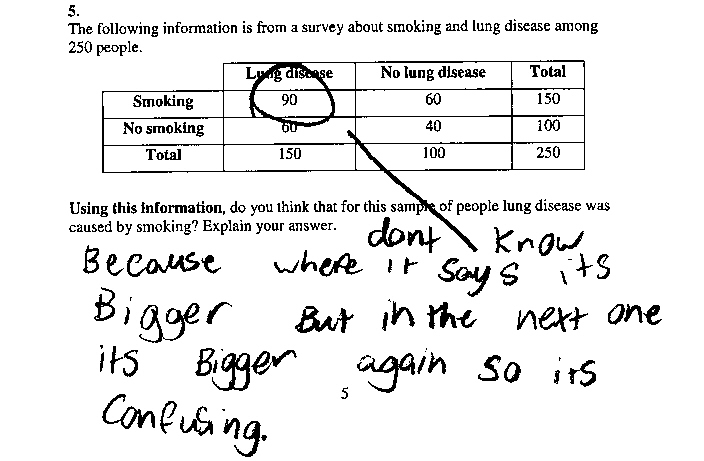 5.
The following information is from a survey about smoking and lung disease among
250 people.
Lung disease No lung disease Total
Smoking 90 60 150
No smoking 60 40 100
Total 150 100 250
Using this information, do you think that for this sample of people lung disease was
caused by smoking? Explain your answer.
dont know
Because where it says its
Bigger But in the next one
its Bigger again so its
Confusing.
5